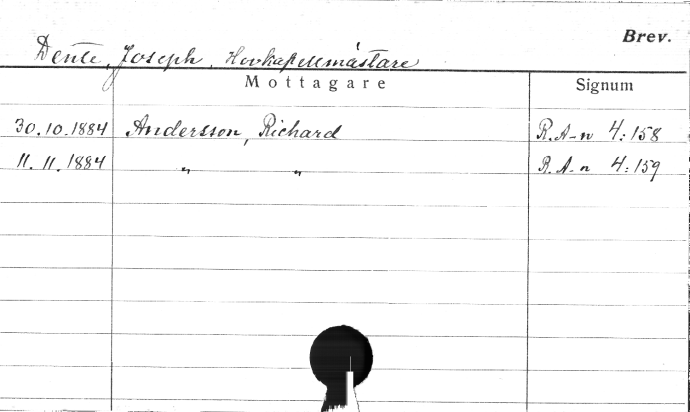 Brev.
Dente, Joseph, Hovkapellmästare
Mottagare Signum
30.10.1884 Andersson, Richard R.A-n 4:158
11.11.1884 " " R.A-n 4:159